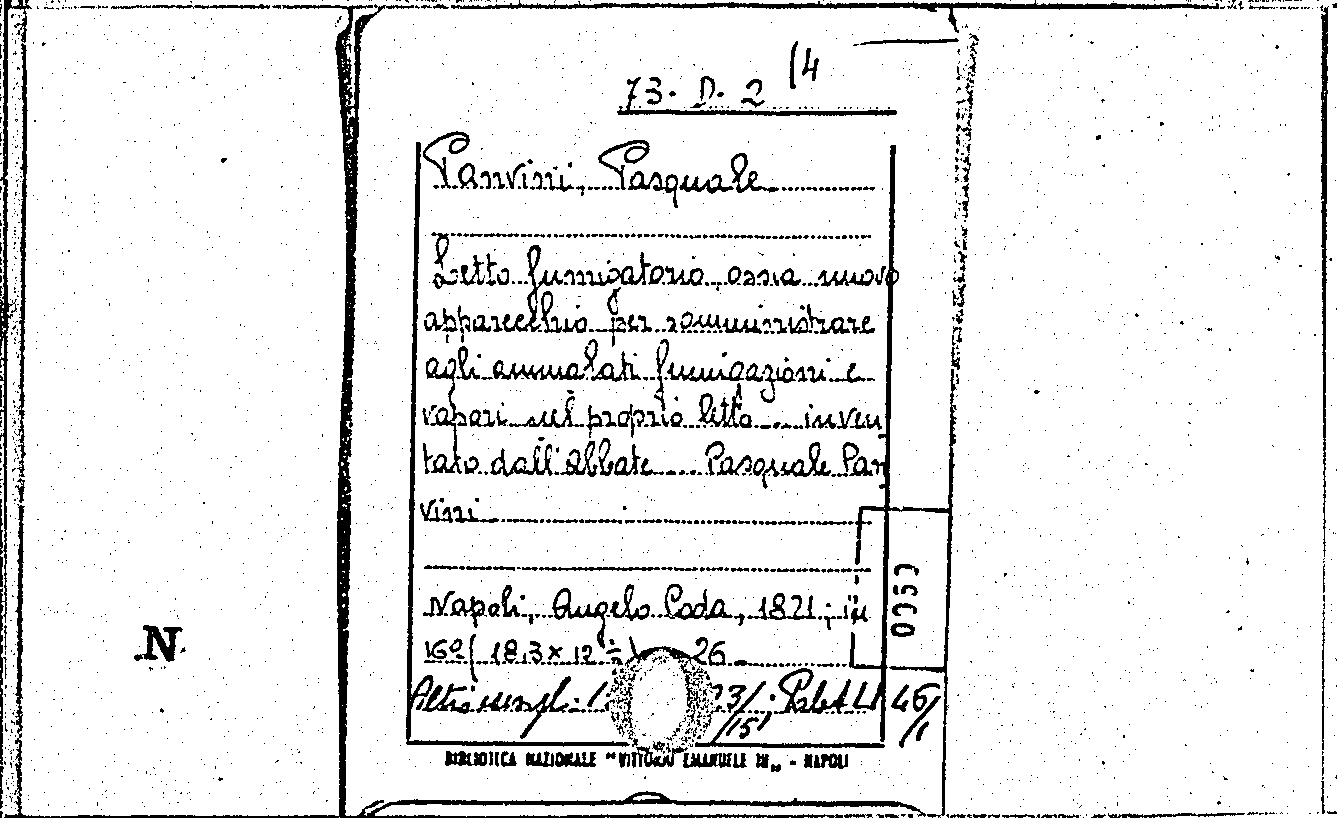 73. D. 2 (4
Panvini, Pasquale
Letto fumigatorio, ossia nuovo
apparecchio per somministrare
agli ammalati fumigazioni e
vapori nel proprio letto ... inven
tato dall'abbate ... Pasquale Pan
vini
Napoli, Angelo Coda, 1821; in
16º( 18,3 x 12 26
Altri esempl. 46/1
0050
N
BIBLIOTECA NAZIONALE "VITTORIO EMANUELE III„ - NAPOLI